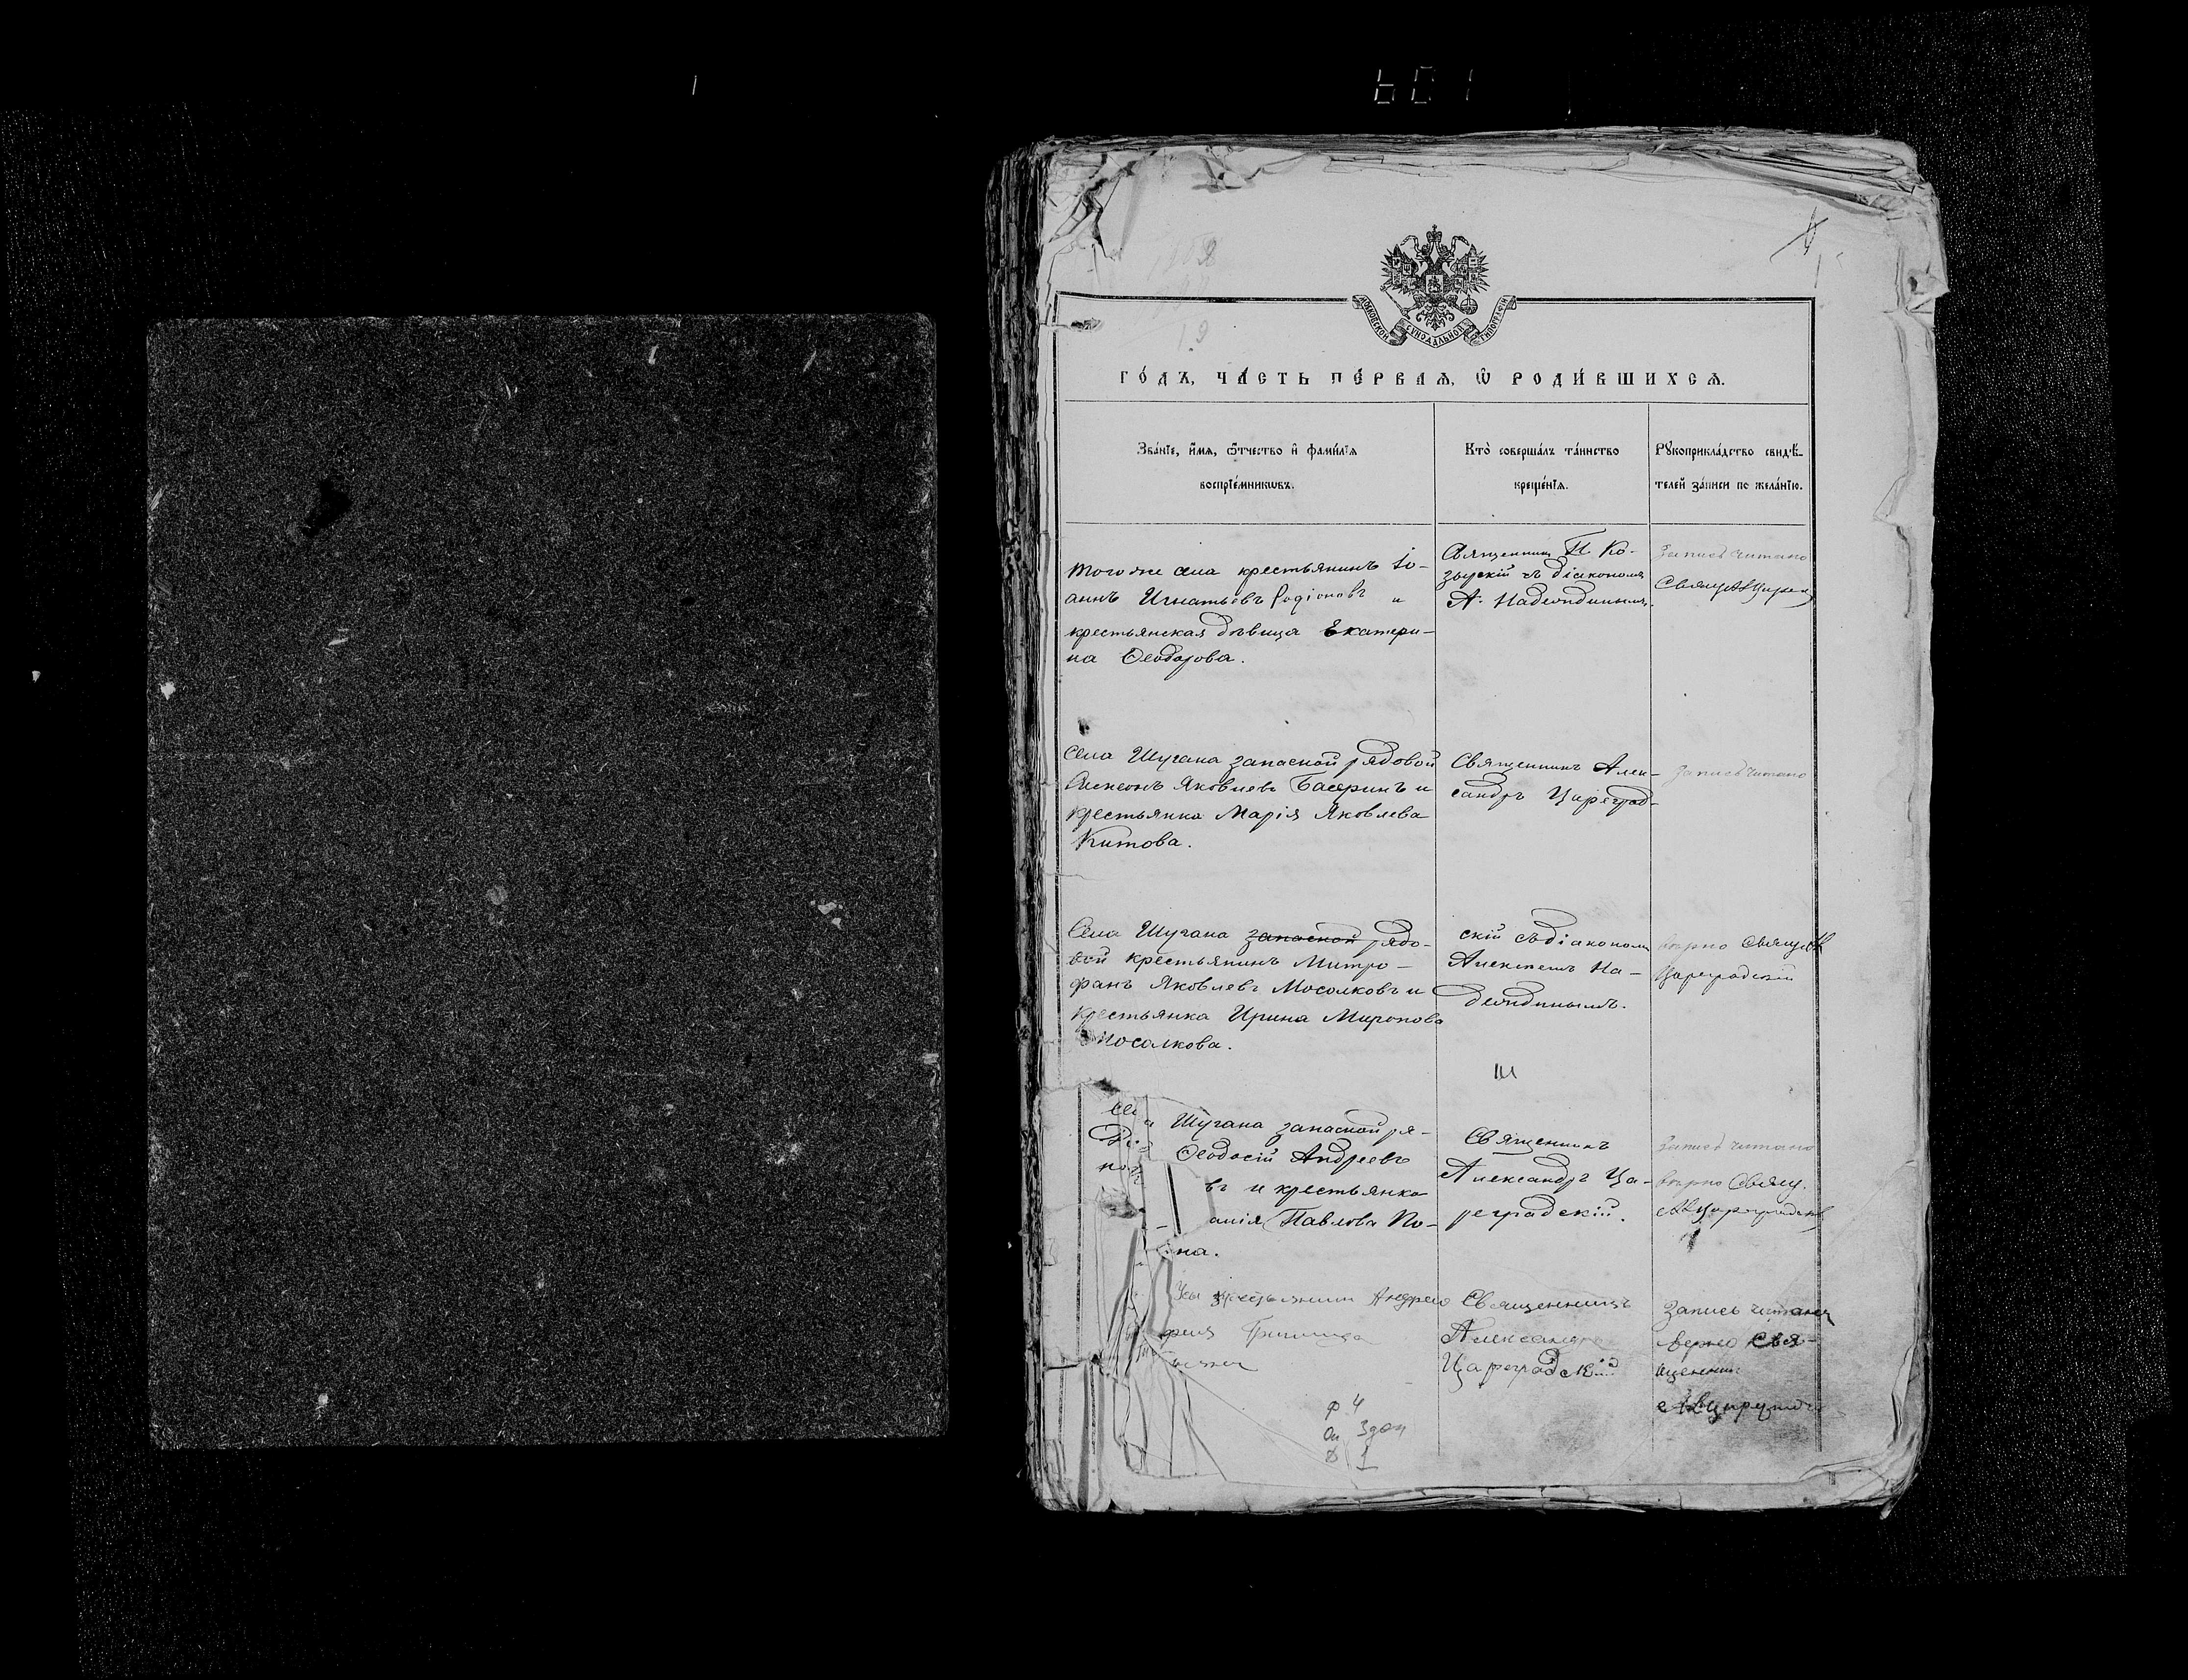 МОСКОВСКОЙ СѴНОДАЛЬНОЙ ТИПОГРАФІИ
ГО́ДЪ, ЧА́СТЬ ПЕ́РВАѦ, Ѡ҆ РОДИ́ВШИХСѦ.
Зва́нїе, и҆́мѧ, ѻ҆́тчество и҆ фами́лїѧ
воспрїе́мникѡвъ.
Кто̀ соверша́лъ та́инство
креще́нїѧ.
Рꙋкоприкла́дство свидѣ́-
телей за́писи по жела́нїю.
Того же села крестьянинъ Іо-
аннъ Игнатьевъ Родіоновъ и
крестьянская дѣвица Екатери-
на Ѳеодорова.
Священникъ П. Ко-
зырскій съ діакономъ
А. Надеждинымъ.
Запись читано
Села Шугана запасной рядовой
Яковлевъ и
крестьянка Марія Яковлева
Китова.
Священникъ Алек-
сандръ Цареград-
Запись читано
Села Шугана запасной рядо-
вой крестьянинъ Митро-
фанъ Яковлевъ Мосолковъ и
крестьянка Ирина Миронова
Мосалкова.
скій съ діакономъ
Алексѣемъ На-
деждинымъ.
вѣрно Свящ. А
Цареградскій
Ш
Шугана запасной ря-
Ѳеодосій Андреевъ
въ и крестьянка
Павлова По-
на.
Священникъ
Александръ Ца-
реградскій.
Запись читано
вѣрно Свящ.
А Цареградскій
крестьянин Андрей
Священникъ
Александр
Цареградскій
Запись читана
верно Свя-
щенник
А Цареград
Ф 4
Оп 3доп
Д 1